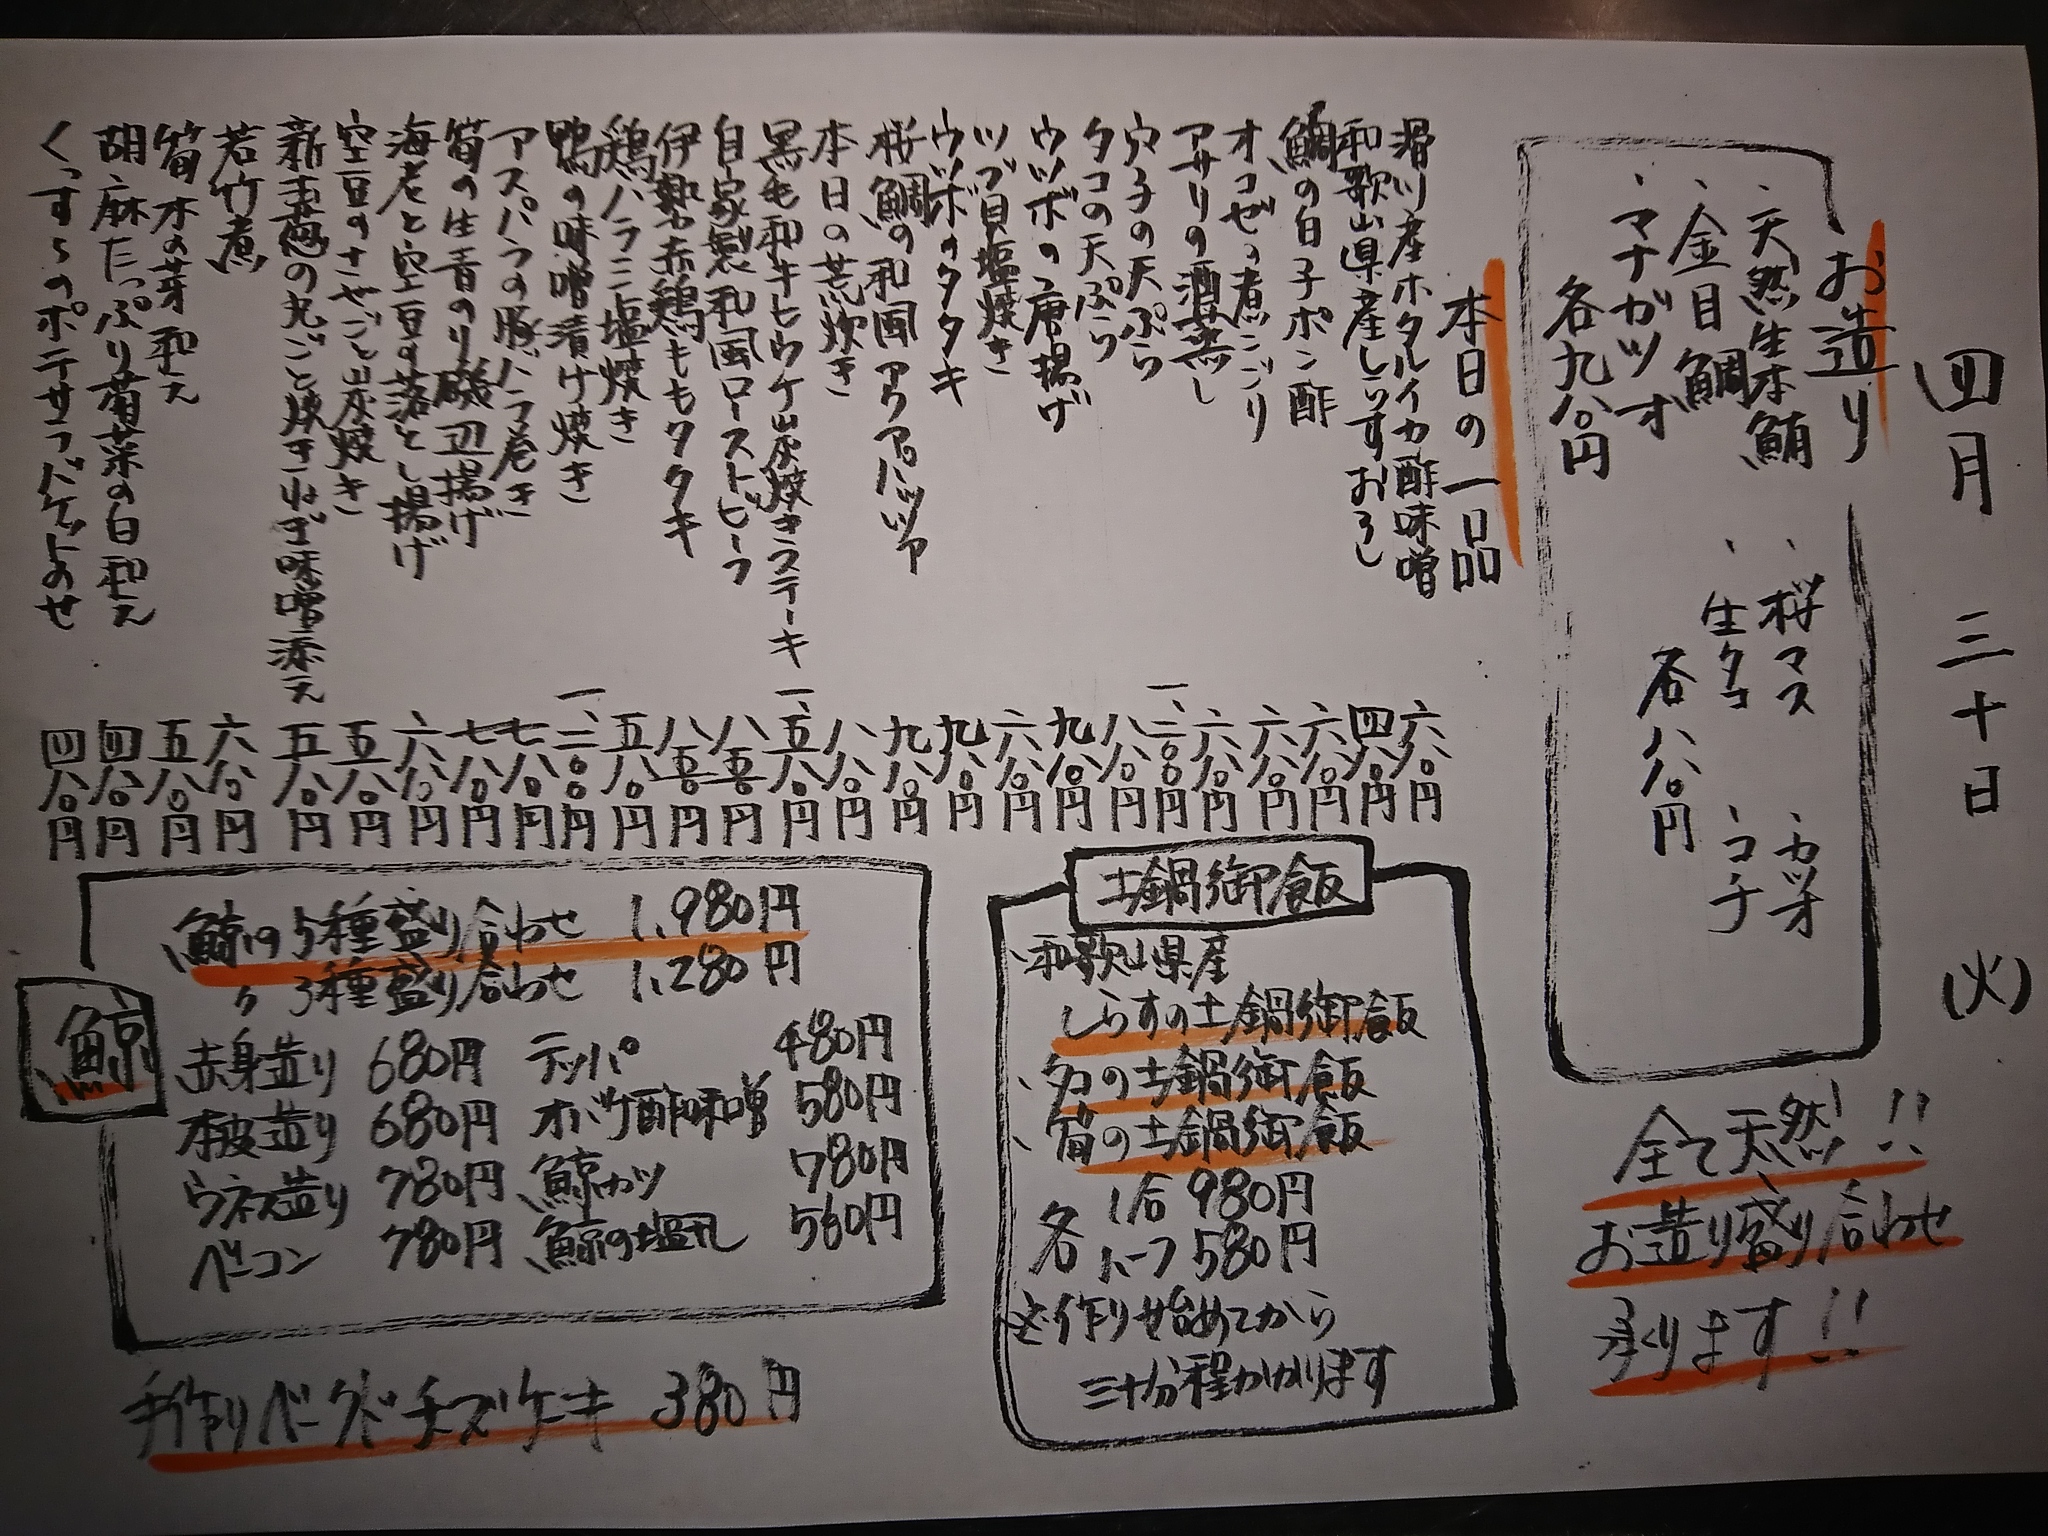 四月 三十日 (火)
お造り
、天然生本鮪 、桜マス 、カツオ
、金目鯛 、生タコ 、コチ
、マナガツオ 各八八〇円
各九八〇円
全て天然!!
お造り盛り合わせ
承ります!!
本日の一品
滑川産ホタルイカ酢味噌 六八〇円
和歌山県産しらすおろし 四八〇円
鯛の白子ポン酢 六八〇円
オコゼの煮こごり 六八〇円
アサリの酒蒸し 六八〇円
穴子の天ぷら 一、二〇〇円
タコの天ぷら 八八〇円
ウツボの唐揚げ 九八〇円
ツブ貝塩焼き 六八〇円
ウツボのタタキ 九八〇円
桜鯛の和風アクアパッツァ 九八〇円
本日の荒炊き 八八〇円
黒毛和牛ヒウチ炭焼きステーキ 一、五八〇円
自家製和風ローストビーフ 八五〇円
伊勢赤鶏ももタタキ 八五〇円
鶏ハラミ塩焼き 五八〇円
鴨の味噌漬け焼き 一、二〇〇円
アスパラの豚バラ巻き 七八〇円
筍の生青のり磯辺揚げ 七八〇円
海老と空豆の落とし揚げ 六八〇円
空豆のさやごと炭焼き 五八〇円
新玉葱の丸ごと焼きねぎ味噌添え 五八〇円
若竹煮 六八〇円
筍木の芽和え 五八〇円
胡麻たっぷり菊菜の白和え 四八〇円
くっすらのポテサラバケットのせ 四八〇円
土鍋御飯
、和歌山県産
しらすの土鍋御飯
、タコの土鍋御飯
、筍の土鍋御飯
各 1合 980円
ハーフ 580円
※作り始めてから
三十分程かかります
鯨
鯨の5種盛り合わせ 1,980円
〃 3種盛り合わせ 1,280円
赤身造り 680円 テッパ 480円
本皮造り 680円 オバケ酢味噌 580円
ウネス造り 780円 鯨カツ 780円
ベーコン 780円 鯨の塩丸 560円
手作りベークドチーズケーキ 380円